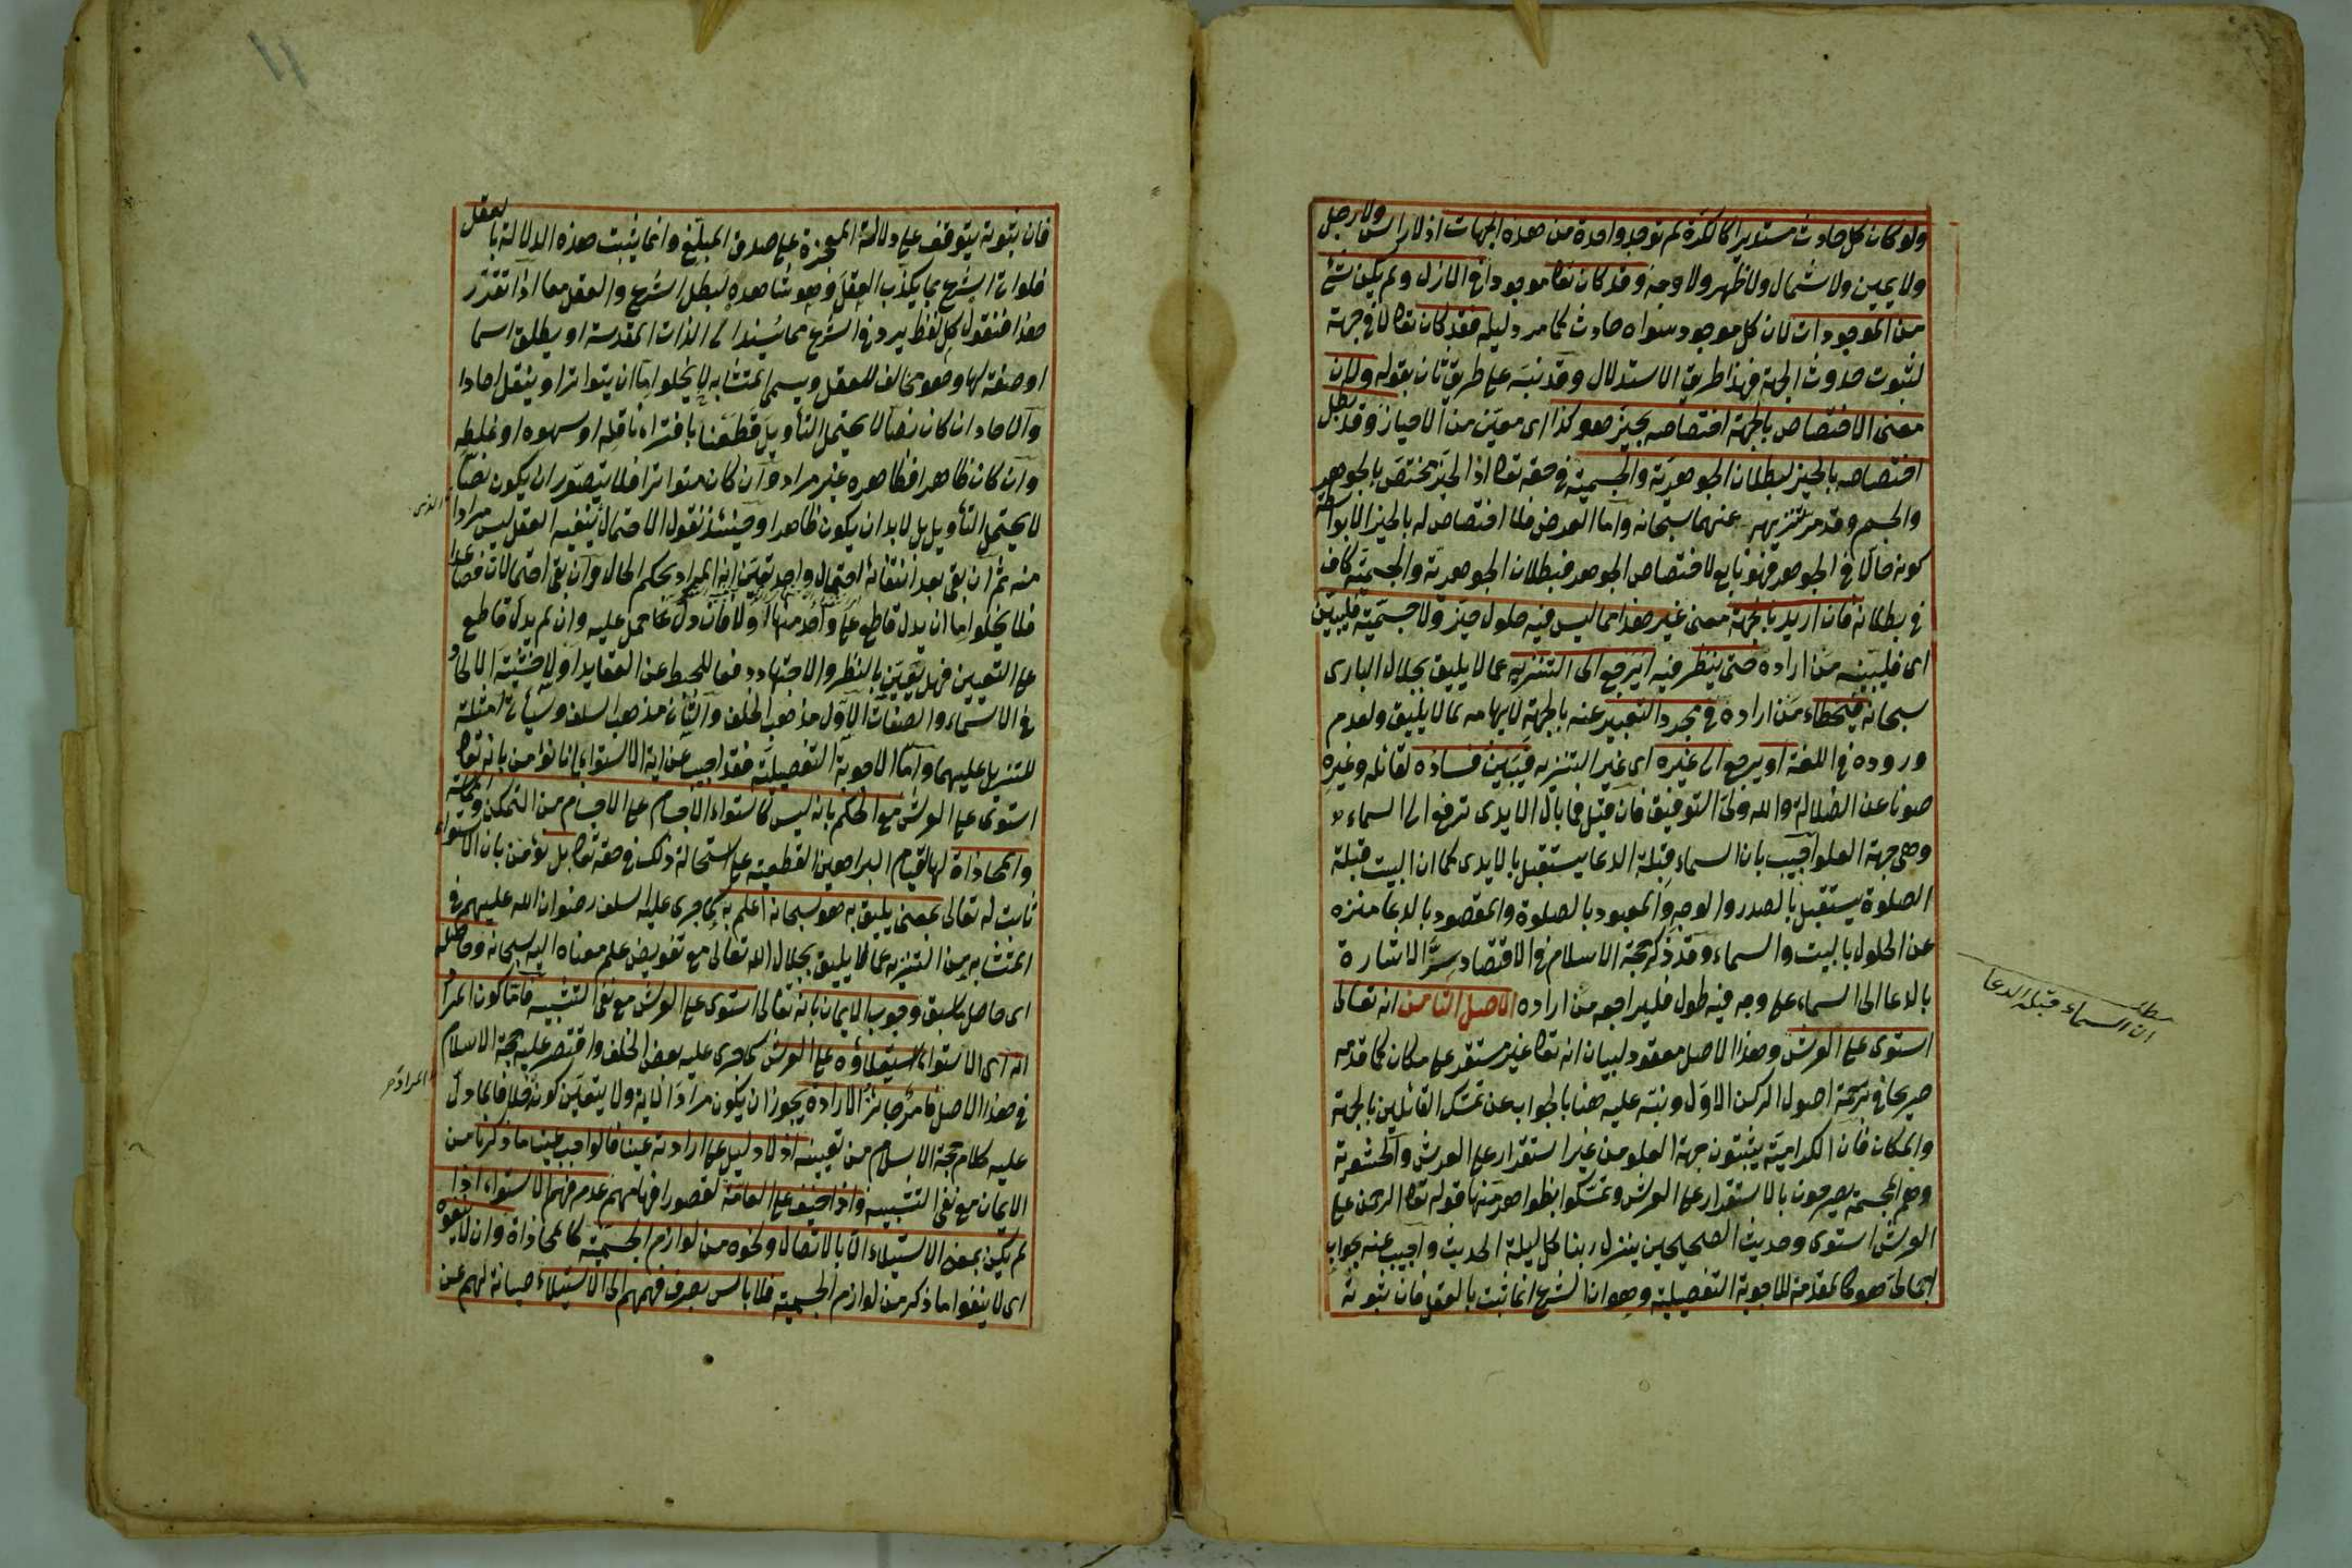 ولو كان كل حادث مستديرا كالكرة لم توجد واحدة من هذه الجهات اذ لا راس ولا رجل
ولا يمين ولا شمال ولا ظهر ولا وجه وقد كان تعا موجودا في الازل ولم يكن شئ
من الموجودات لان كل موجود سواه حادث كما مر دليله فقد كان تعا لا في جهة
لثبوت حدوث الجهة فهذا طريق الاستدلال وقد نبه على طريق ثان بقوله ولان
معنى الاختصاص بالجهة اختصاصه بحيز هو كذا اى معين من الاحياز وقد بطل
اختصاصه بالحيز لبطلان الجوهرية والجسمية في حقه تعا اذ الحيز مختص بالجوهر
والجسم وقد مر تنزيهه عنهما سبحانه واما العرض فلا اختصاص له بالحيز الا بواسطة
كونه حالا في الجوهر فهو تابع لاختصاص الجوهر فبطلان الجوهرية والجسمية كاف
في بطلانه فان اريد بالجهة معنى غير هذا مما ليس فيه حلول حيز ولا جسمية فليبين
اى فليبينه من اراده حتى ينظر فيه ايرجع الى التنزيه عما لا يليق بجلال البارى
سبحانه فيخطاء من اراده في مجرد التعبير عنه بالجهة لايهامه لما لا يليق ولعدم
وروده في اللغة او يرجع الى غيره اى غير التنزيه فيبين فساده لقائله وغيره
صونا عن الضلالة والله ولى التوفيق فان قيل فما بال الايدى ترفع الى السماء
وهى جهة العلو اجيب بان السماء قبلة الدعا يستقبل بالايدى كما ان البيت قبلة
الصلوة يستقبل بالصدر والوجه والمعبود بالصلوة والمقصود بالدعا منزه
عن الحلول بالبيت والسماء وقد ذكر حجة الاسلام في الاقتصاد سر الاشارة
بالدعا الى السماء على وجه فيه طول فليراجعه من اراده الاصل الثامن انه تعالى
استوى على العرش وهذا الاصل معقود لبيان انه تعا غير مستقر على مكان كما قدمه
صريحا في ترجمة اصول الركن الاول ونبه عليه هنا بالجواب عن تمسك القائلين بالجهة
والمكان فان الكرامية يثبتون جهة العلو من غير استقرار على العرش والحشوية
وهم المجسمة يصرحون بالاستقرار على العرش وتمسكوا بظواهر منها قوله تعا الرحمن على
العرش استوى وحديث الصحيحين ينزل ربنا كل ليلة الحديث واجيب عنه بجواب
اجمالى هو كالمقدمة للاجوبة التفصيلية وهو ان الشرع انما ثبت بالعقل فان ثبوته
مطلب
ان السماء قبلة الدعا
فان ثبوته يتوقف على دلالة المعجزة على صدق المبلغ وانما يثبت هذه الدلالة بالعقل
فلو اتى الشرع بما يكذب العقل وهو شاهده لبطل الشرع والعقل معا اذا تقرر
هذا فنقول كل لفظ يرد في الشرع مما يسند الى الذات المقدسة او يطلق اسما
او صفة لها وهو مخالف للعقل ويسمى المتشابه لا يخلو اما ان يتواتر او ينقل احادا
والاحاد ان كان نصا لا يحتمل التأويل قطعنا بافتراء ناقله او سهوه او غلطه
وان كان ظاهرا فظاهره غير مراد وان كان متواترا فلا يتصور ان يكون نصا
لا يحتمل التأويل بل لا بد ان يكون ظاهرا وحينئذ نقول الاحتمال ينفيه العقل ليس مرادا
الذى
منه ثم ان بقى بعد انتفائه احتمال واحد تعين انه المراد بحكم الحال وان بقى احتمالات فصاعدا
فلا يخلو اما ان يدل قاطع على واحد منها اولا فان دل حمل عليه وان لم يدل قاطع
على التعيين فهل تعين بالنظر والاجتهاد دفعا للخبط عن العقايد او لا خشية الالحاد
في الاسماء والصفات الاول مذهب الخلف والثانى مذهب السلف وسيأتى امثلة
للتنزيل عليهما واما الاجوبة التفصيلية فقد اجيب عن اية الاستواء بانا نؤمن بانه تعا
استوى على العرش مع الحكم بانه ليس كاستواء الاجسام على الاجسام من التمكن والمماسة
والمحاذاة لها لقيام البراهين القطعية على استحالة ذلك في حقه تعا بل نؤمن بان الاستواء
ثابت له تعالى بمعنى يليق به هو سبحانه اعلم به كما جرى عليه السلف رضوان الله عليهم في
المتشابه من التنزيه عما لا يليق بجلال الله تعالى مع تفويض علم معناه اليه سبحانه وحاصله
اى حاصل ما سبق وجوب الايمان بانه تعالى استوى على العرش مع نفى التشبيه فاما كون المراد
انه اى الاستواء استيلاؤه على العرش كما جرى عليه بعض الخلف واقتصر عليه حجة الاسلام
في هذا الاصل فامر جائز الارادة يجوز ان يكون مراد الاية ولا يتعين كونه المراد خلافا لما دل
عليه كلام حجة الاسلام من تعيينه اذ لا دليل على ارادته عينا فالواجب عينا ما ذكرنا من
الايمان مع نفى التشبيه واذا خيف على العامة لقصور افهامهم عدم فهم الاستواء اذا
لم يكن بمعنى الاستيلاء الا بالاتصال ونحوه من لوازم الجسمية كالمحاذاة وان لا ينفوه
اى لا ينفوا ما ذكر من لوازم الجسمية فلا باس بصرف فهمهم الى الاستيلاء صيانة لهم عن